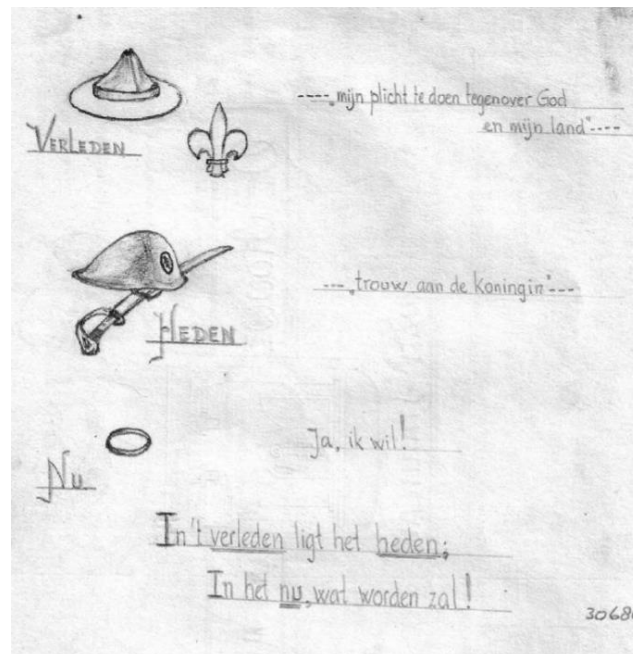 ----„mijn plicht te doen tegenover God
en mijn land"----
VERLEDEN
---„trouw aan de Koningin"---
HEDEN
Ja, ik wil!
NU
In 't verleden ligt het heden;
In het nu, wat worden zal!